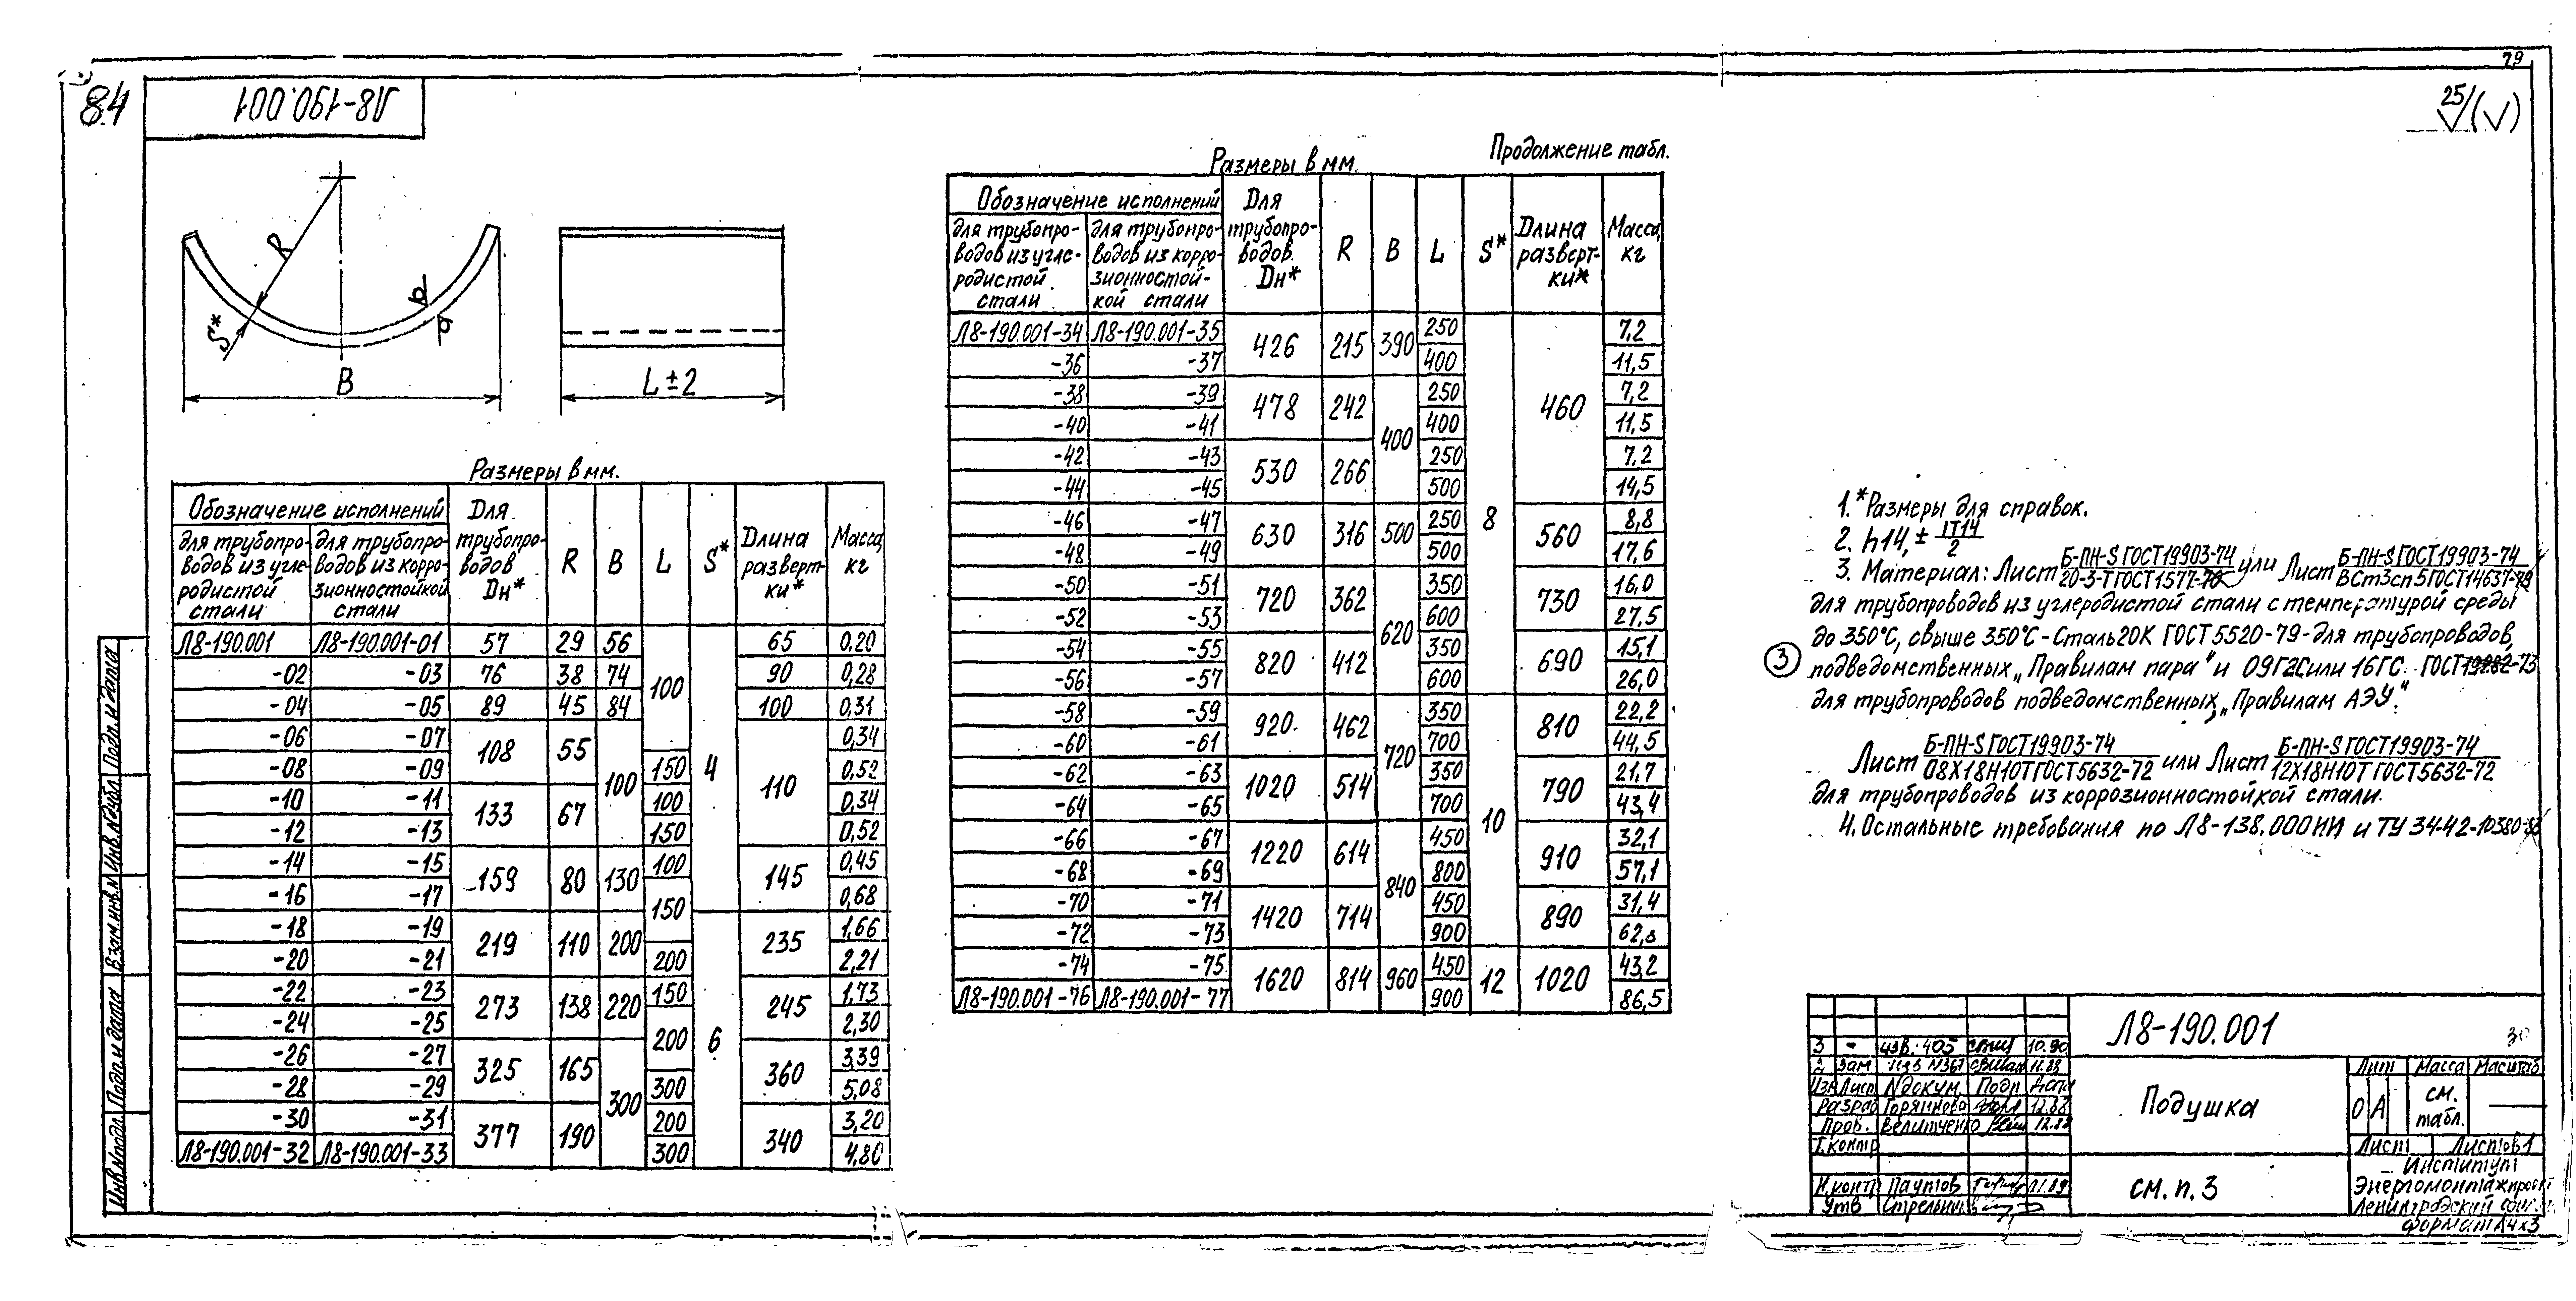 79
84
Л8-190.001
25/(√)
R
S*
B
L±2
Размеры в мм.
Обозначение исполнений
для трубопроводов из углеродистой стали
для трубопроводов из коррозионностойкой стали
Для трубопроводов Dн*
R
B
L
S*
Длина развертки*
Масса, кг
Л8-190.001 Л8-190.001-01 57 29 56 100 4 65 0,20
-02 -03 76 38 74 90 0,28
-04 -05 89 45 84 100 0,31
-06 -07 108 55 100 110 0,34
-08 -09 150 0,52
-10 -11 133 67 100 0,34
-12 -13 150 0,52
-14 -15 159 80 130 100 145 0,45
-16 -17 150 0,68
-18 -19 219 110 200 6 235 1,66
-20 -21 200 2,21
-22 -23 273 138 220 150 245 1,73
-24 -25 200 2,30
-26 -27 325 165 300 360 3,39
-28 -29 300 5,08
-30 -31 377 190 200 340 3,20
Л8-190.001-32 Л8-190.001-33 300 4,80
Продолжение табл.
Размеры в мм.
Обозначение исполнений
для трубопроводов из углеродистой стали
для трубопроводов из коррозионностойкой стали
Для трубопроводов Dн*
R
B
L
S*
Длина развертки*
Масса, кг
Л8-190.001-34 Л8-190.001-35 426 215 390 250 8 460 7,2
-36 -37 400 11,5
-38 -39 478 242 400 250 7,2
-40 -41 400 11,5
-42 -43 530 266 250 7,2
-44 -45 500 14,5
-46 -47 630 316 500 250 560 8,8
-48 -49 500 17,6
-50 -51 720 362 620 350 730 16,0
-52 -53 600 27,5
-54 -55 820 412 350 690 15,1
-56 -57 600 26,0
-58 -59 920 462 720 350 10 810 22,2
-60 -61 700 44,5
-62 -63 1020 514 350 790 21,7
-64 -65 700 43,4
-66 -67 1220 614 840 450 910 32,1
-68 -69 800 57,1
-70 -71 1420 714 450 890 31,4
-72 -73 900
-74 -75 1620 814 960 450 12 1020 43,2
Л8-190.001-76 Л8-190.001-77 900 86,5
1.*Размеры для справок.
2. h14, ± IT14/2
3. Материал: Лист Б-ПН-S ГОСТ19903-74 / 20-3-Т ГОСТ1577- или Лист Б-ПН-S ГОСТ19903-74 / ВСт3сп5 ГОСТ14637-
для трубопроводов из углеродистой стали с температурой среды
до 350°С, свыше 350°С - Сталь 20К ГОСТ 5520-79 - для трубопроводов,
③ подведомственных „Правилам пара" и 09Г2С или 16ГС ГОСТ19282-73
для трубопроводов подведомственных, „Правилам АЭУ".
Лист Б-ПН-S ГОСТ19903-74 / 08Х18Н10Т ГОСТ5632-72 или Лист Б-ПН-S ГОСТ19903-74 / 12Х18Н10Т ГОСТ5632-72
для трубопроводов из коррозионностойкой стали.
4. Остальные требования по Л8-138.000ИИ и ТУ 34-42-10380-
Инв.N подл. Подп. и дата Взам.инв.N Инв.N дубл. Подп. и дата
3 - изв. 405 10.90
2 Зам Изв N367 11.89
Изм Лист N докум. Подп Дата
Разраб Горяинова 12.88
Пров. Велитченко 12.88
Т.контр
Н.контр Паутов 11.89
Утв
Л8-190.001
30
Подушка
см. п. 3
Лит Масса Масштаб
О А см. табл.
Лист Листов 1
Институт
Энергомонтажпроект
Ленинградский
формат А4х3